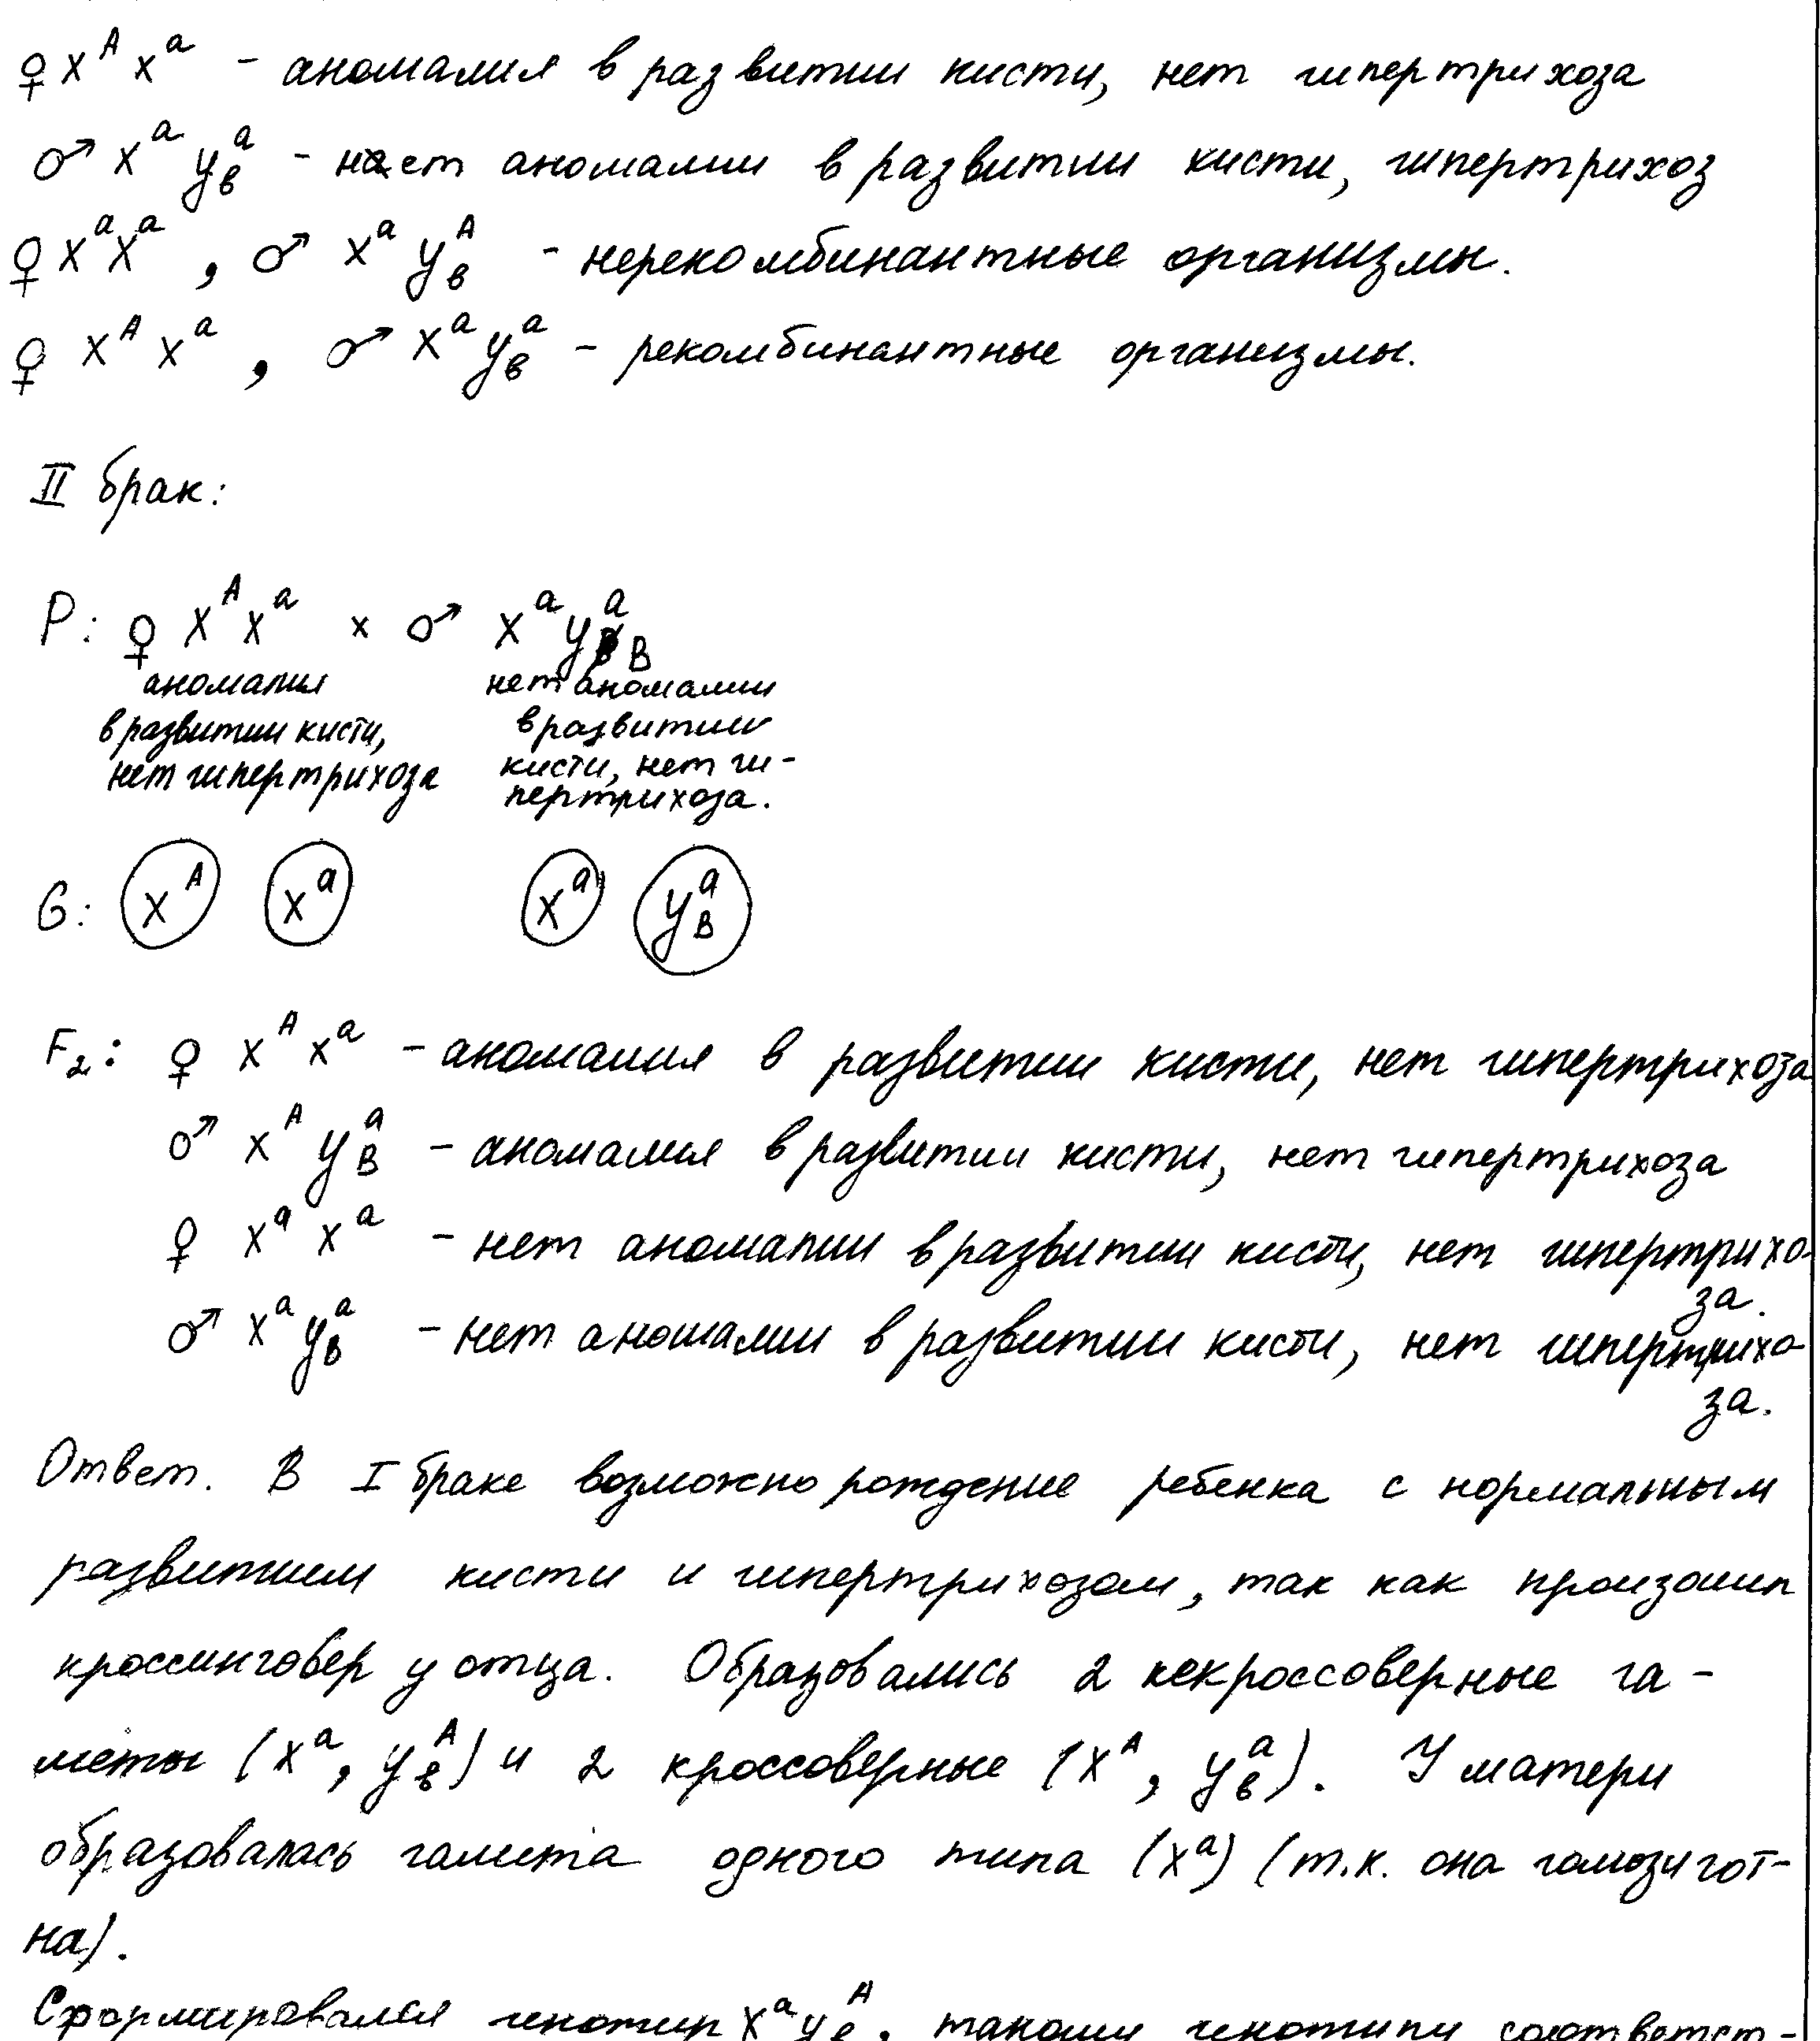 ♀ X^A X^a - аномалия в развитии кисти, нет гипертрихоза
♂ X^a Y_в^a - нет аномалии в развитии кисти, гипертрихоз
♀ X^a X^a , ♂ X^a Y_в^A - нерекомбинантные организмы.
♀ X^A X^a , ♂ X^a Y_в^a - рекомбинантные организмы.
II брак:
P: ♀ X^A X^a × ♂ X^a Y_B^a
аномалия нет аномалии
в развитии кисти, в развитии
нет гипертрихоза кисти, нет ги-
пертрихоза.
G: X^A X^a X^a Y_B^a
F₂: ♀ X^A X^a - аномалия в развитии кисти, нет гипертрихоза
♂ X^A Y_B^a - аномалия в развитии кисти, нет гипертрихоза
♀ X^a X^a - нет аномалии в развитии кисти, нет гипертрихо-
за.
♂ X^a Y_B^a - нет аномалии в развитии кисти, нет гипертрихо-
за.
Ответ. В I браке возможно рождение ребенка с нормальным
развитием кисти и гипертрихозом, так как произошел
кроссинговер у отца. Образовались 2 некроссоверные га-
меты (X^a, Y_в^A) и 2 кроссоверные (X^A, Y_в^a). У матери
образовалась гамета одного типа (X^a) (т.к. она гомозигот-
на).
Сформировался генотип X^a Y_в^A, такому генотипу соответст-